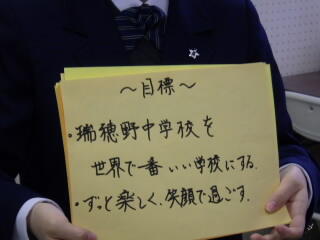 ～目標～
・瑞穂野中学校を
世界で一番いい学校にする.
・ずっと楽しく、笑顔で過ごす.